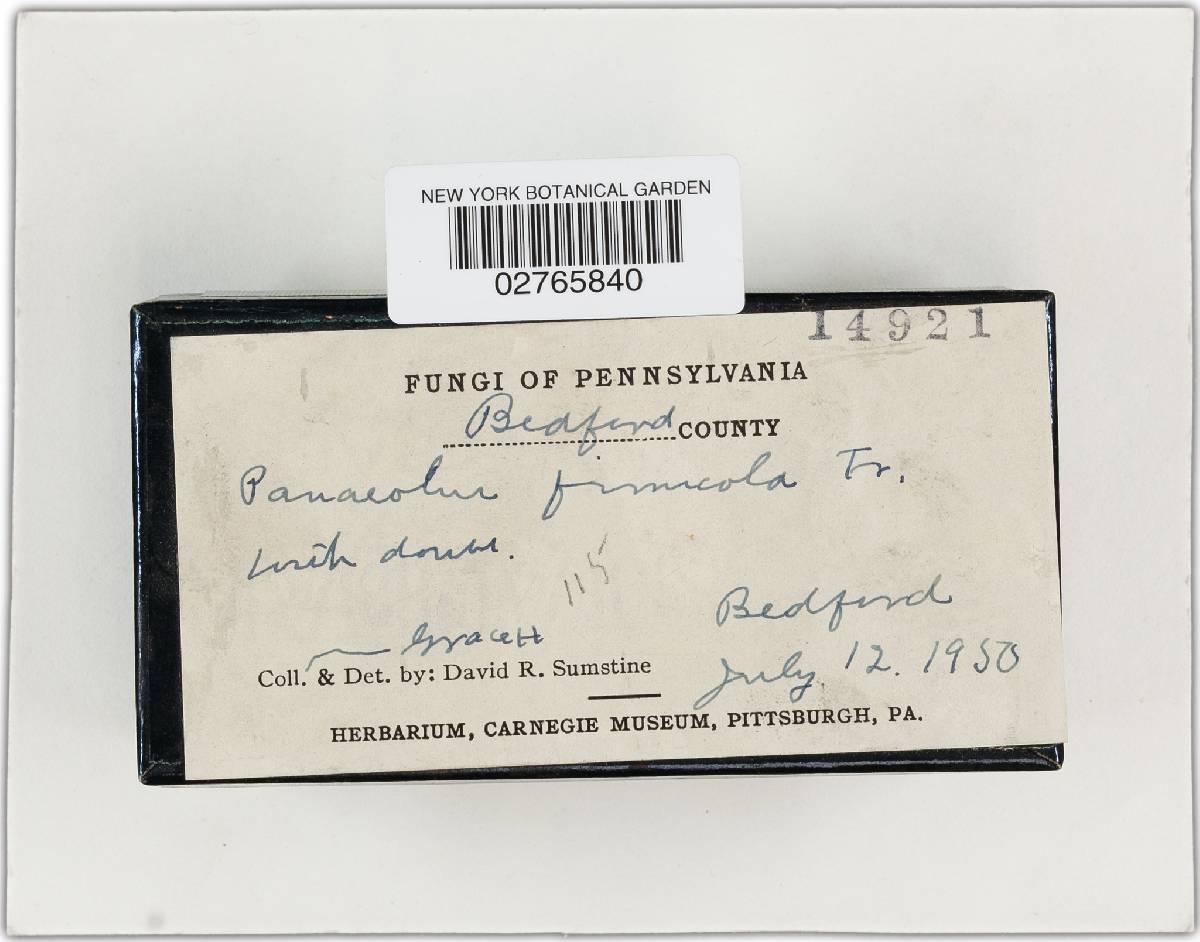 NEW YORK BOTANICAL GARDEN
02765840
14921
FUNGI OF PENNSYLVANIA
Bedford COUNTY
Panaeolus fimicola Fr.
with doubt.
115
Bedford
Grace H
July 12. 1950
Coll. & Det. by: David R. Sumstine
HERBARIUM, CARNEGIE MUSEUM, PITTSBURGH, PA.